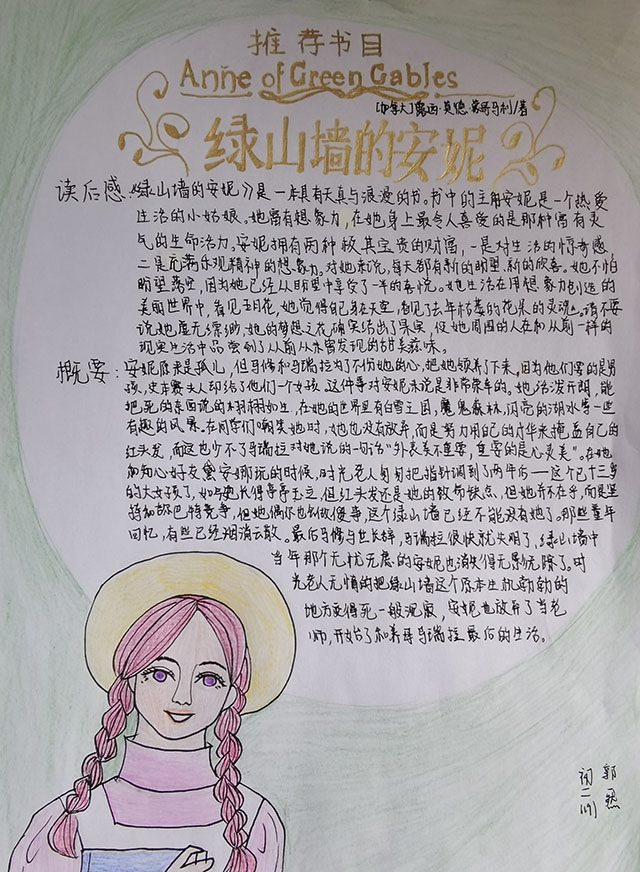 推荐书目
Anne of Green Gables
[加拿大]露西·莫德·蒙哥马利/著
绿山墙的安妮
读后感:《绿山墙的安妮》是一本具有天真与浪漫的书。书中的主角安妮是一个热爱
生活的小姑娘。她富有想象力,在她身上最令人喜爱的是那种富有灵
气的生命活力。安妮拥有两种极其宝贵的财富,一是对生活的惊奇感
二是充满乐观精神的想象力。对她来说,每天都有新的盼望,新的欣喜。她不怕
盼望落空,因为她已经从盼望中享受了一半的喜悦。她生活在用想象力创造的
美丽世界中,看见五月花,她觉得自己身在天空,看见了去年枯萎的花朵的灵魂。请不要
说她虚无缥缈,她的梦想之花确实结出了果实,使她周围的人在和从前一样的
现实生活中品尝到了从前从未曾发现的甜美滋味。
概要:安妮原来是孤儿,但马修和玛瑞拉为了不伤她的心,把她领养了下来。因为他们要的是男
孩,史本赛夫人却给了他们一个女孩,这件事对安妮来说是非常荣幸的。她活泼开朗,能
把死的东西说的栩栩如生,在她的世界里有白雪王国,魔鬼森林,闪亮的湖水等一些
有趣的风景。在同学们嘲笑她时,她也没有放弃,而是努力用自己的才华来掩盖自己的
红头发,而这也少不了玛瑞拉对她说的一句话“外表美不重要,重要的是心灵美”。在她
和知心好友黛安娜玩的时候,时光老人匆匆把指针调到了两年后——这个已十三岁
的大女孩了,长得亭亭玉立,但红头发还是她的致命缺点,但她并不在乎,而是坚
持和吉尔巴特竞争,但她偶尔也会做傻事,这个绿山墙已经不能没有她了。那些童年
回忆,有些已经烟消云散。最后马修与世长辞,玛瑞拉很快就失明了,绿山墙中
当年那个无忧无虑的安妮也消失得无影无踪了。时
光老人无情的把绿山墙这个原本生机勃勃的
地方变得死一般沉寂,安妮也放弃了当老
师,开始了和养母玛瑞拉最后的生活。
初二(19) 郭然